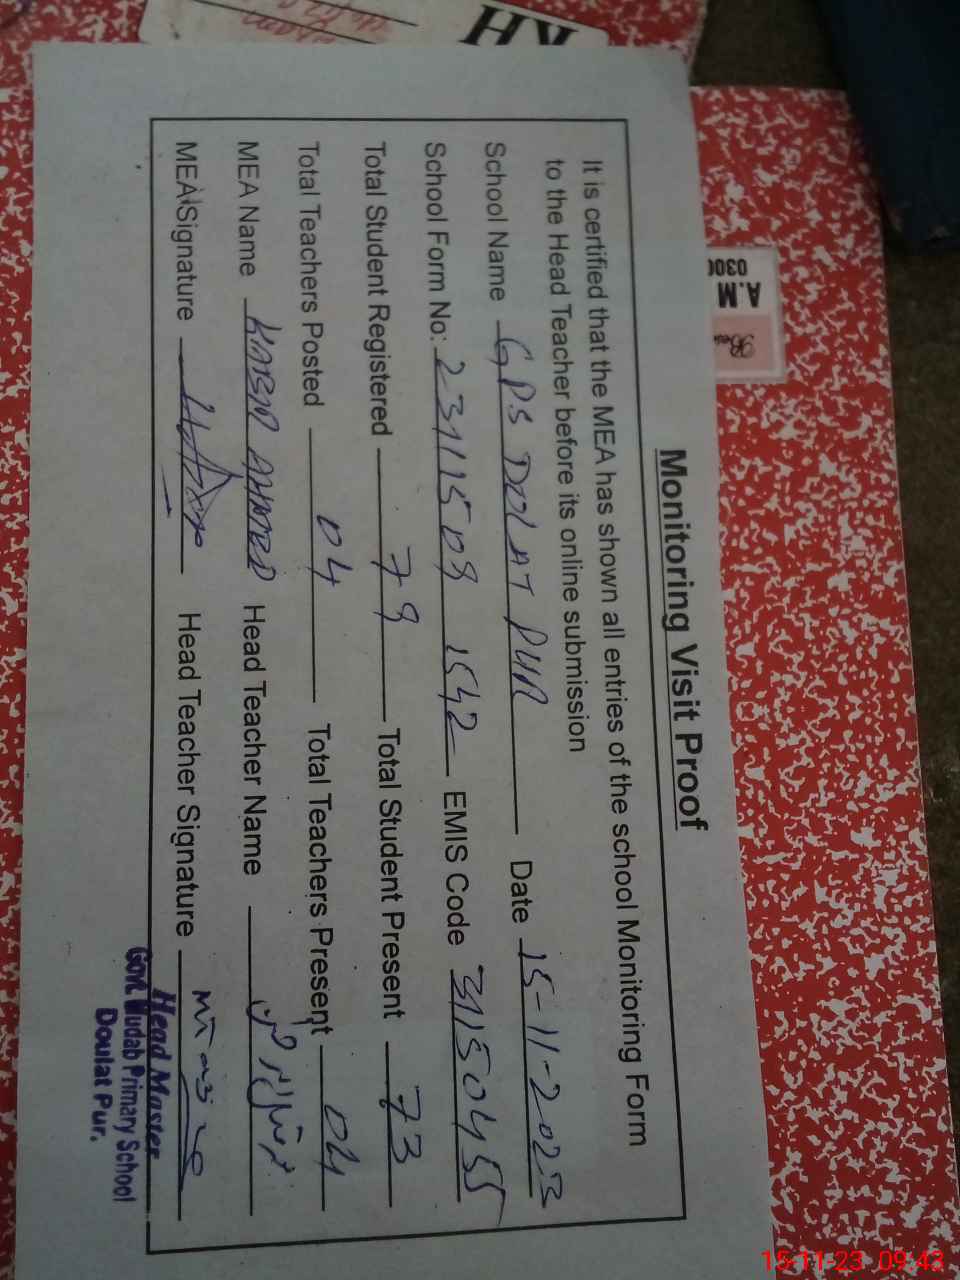 Monitoring Visit Proof
It is certified that the MEA has shown all entries of the school Monitoring Form
to the Head Teacher before its online submission
School Name GPS DOLAT PUR Date 15-11-2023
School Form No: 23111508 1542 EMIS Code 31150455
Total Student Registered 78 Total Student Present 73
Total Teachers Posted 04 Total Teachers Present 04
MEA Name AHMED Head Teacher Name
MEA Signature Head Teacher Signature
Head Master
Govt. Primary School
Doulat Pur.
A.M
0300
KH
15-11-23 09:43